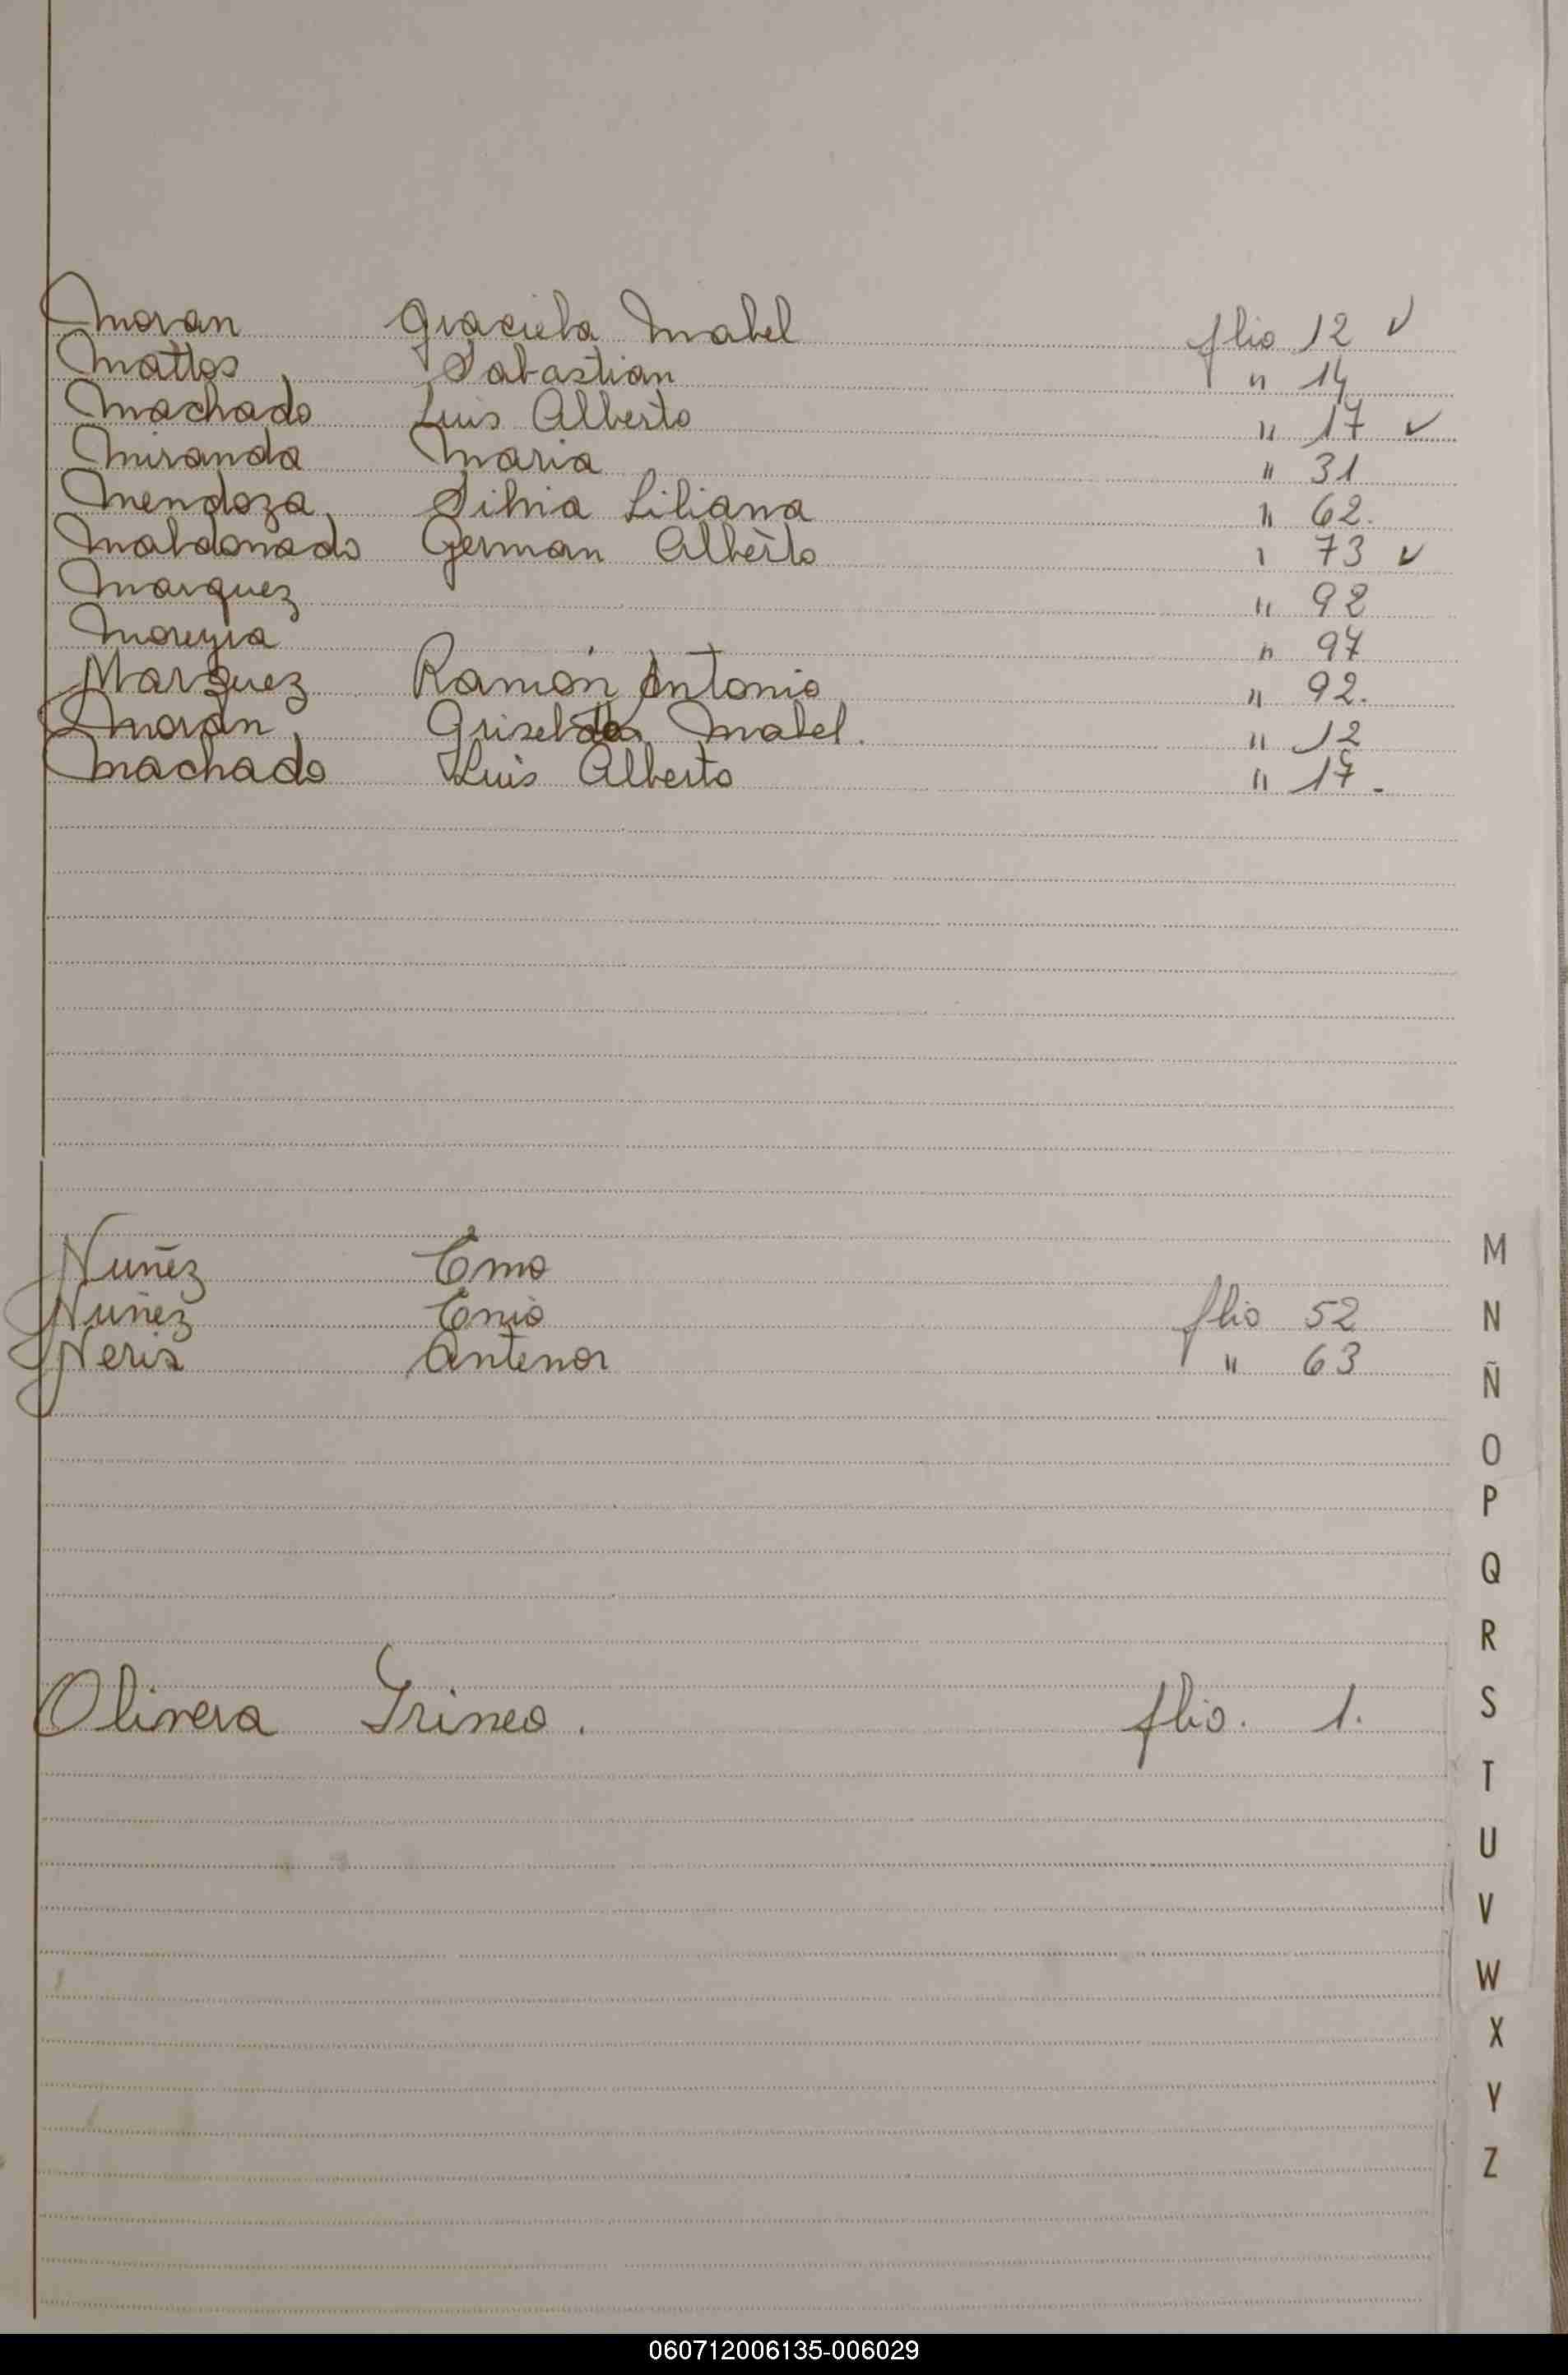 Moran Graciela Mabel flio 12 ✓
Mattos Sabastian " 14
Machado Luis Alberto " 17 ✓
Miranda Maria " 31
Mendoza Silvia Liliana " 62.
Maldonado German Alberto " 73 ✓
Marquez " 92
Moreyra " 97
Marquez Ramón Antonio " 92.
Morán Griselda Mabel. " 12
Machado Luis Alberto " 17.
Nuñez Emo
Nuñez Enio flio 52
Neris Antenor " 63
Olivera Irineo. flio. 1.
M
N
Ñ
O
P
Q
R
S
T
U
V
W
X
Y
Z
060712006135-006029